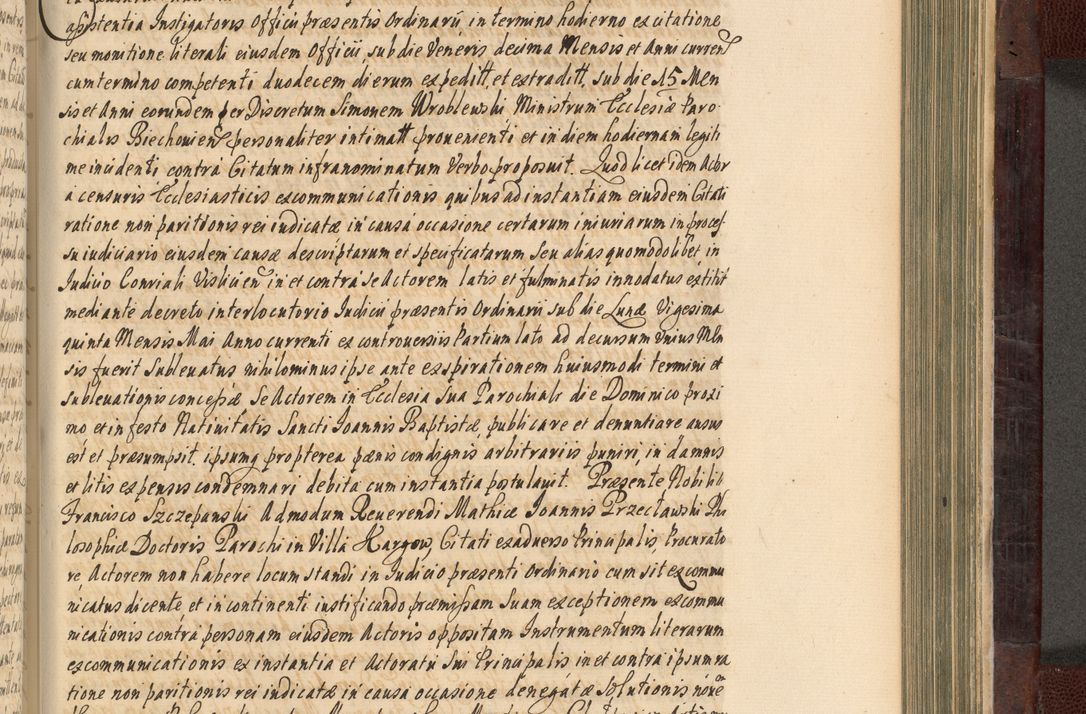 assistentia Instigatoris Officii præsentis Ordinarii in termino hodierno ex citatione
seu monitione literali eiusdem Officii, sub die Veneris decima Mensis et Anni curren
cum termino competenti duodecem dierum expeditt, et extraditt, sub die 15 Men
sis et Anni eorundem per Discretum Simonem Wroblewski Ministrum Ecclesiæ Paro
chialis Biechovien personaliter intimatt provenienti et in diem hodiernam legiti
me incidenti contra Citatum infranominatum Verbo proposuit. Quod licet idem Actor
a censuris Ecclesiasticis excommunicationis quibus ad instantiam eiusdem Citati
ratione non paritionis rei iudicatæ in causa occasione certarum iniuriarum in proces
su iudiciario eiusdem causæ descriptarum et specificatarum Seu alias quomodolibet in
Iudicio Consiali Vislicien in et contra se Actorem latis et fulminatis innodatus extitit
mediante decreto interlocutorio Iudicii præsentis Ordinarii sub die Lunæ Vigesima
quinta Mensis Mai Anno currenti ex controversiis Partium lato ad decursum Unius Men
sis fuerit Sublevatus nihilominus ipse ante exspirationem huiusmodi termini et
sublevationis concessæ Se Actorem in Ecclesia Sua Parochiali die Dominico proxi
mo et in festo Nativitatis Sancti Joannis Baptistæ, publicare et denuntiare ausus
est et præsumpsit, ipsumq propterea pænis condignis arbitrariis puniri, in damnis
et litis expensis condemnari debita cum instantia postulavit. Præsente Nobili
Francisco Szczepanski Admodum Reverendi Mathiæ Joannis Przecławski Phi
losophiæ Doctoris Parochi in Villa Hargow, Citati ex adverso Principalis, Procurato
re, Actorem non habere locum standi in Iudicio præsenti Ordinario cum sit excommu
nicatus dicente et in continenti iustificando præmissam Suam exceptionem excommu
nicationis contra personam eiusdem Actoris oppositam Instrumentum literarum
excommunicationis ex instantia et Actoratu Sui Principalis in et contra ipsum ra
tione non paritionis rei indicatæ in causa occasione denegatæ solutionis